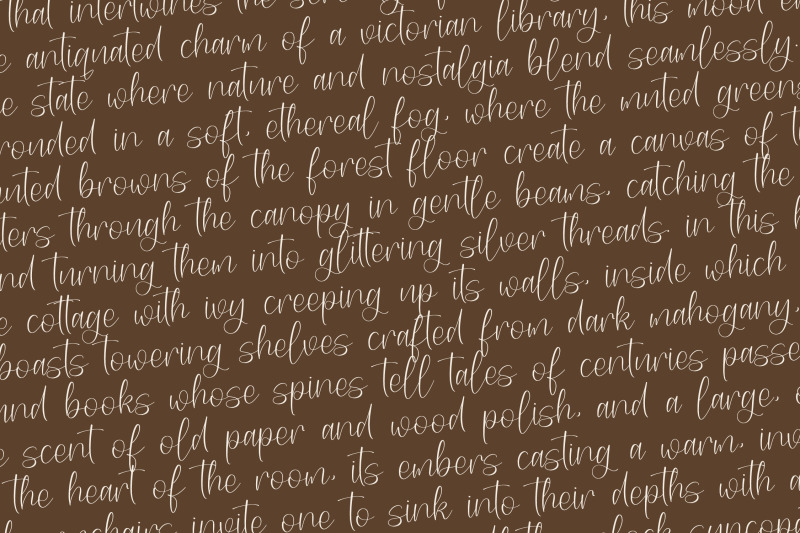 that intertwines the
antiquated charm of a victorian library, this mood
state where nature and nostalgia blend seamlessly.
in a soft, ethereal fog, where the muted greens
browns of the forest floor create a canvas of
through the canopy in gentle beams, catching the
and turning them into glittering silver threads. in this
cottage with ivy creeping up its walls, inside which
boasts towering shelves crafted from dark mahogany,
and books whose spines tell tales of centuries
scent of old paper and wood polish, and a large,
the heart of the room, its embers casting a warm,
invite one to sink into their depths with a